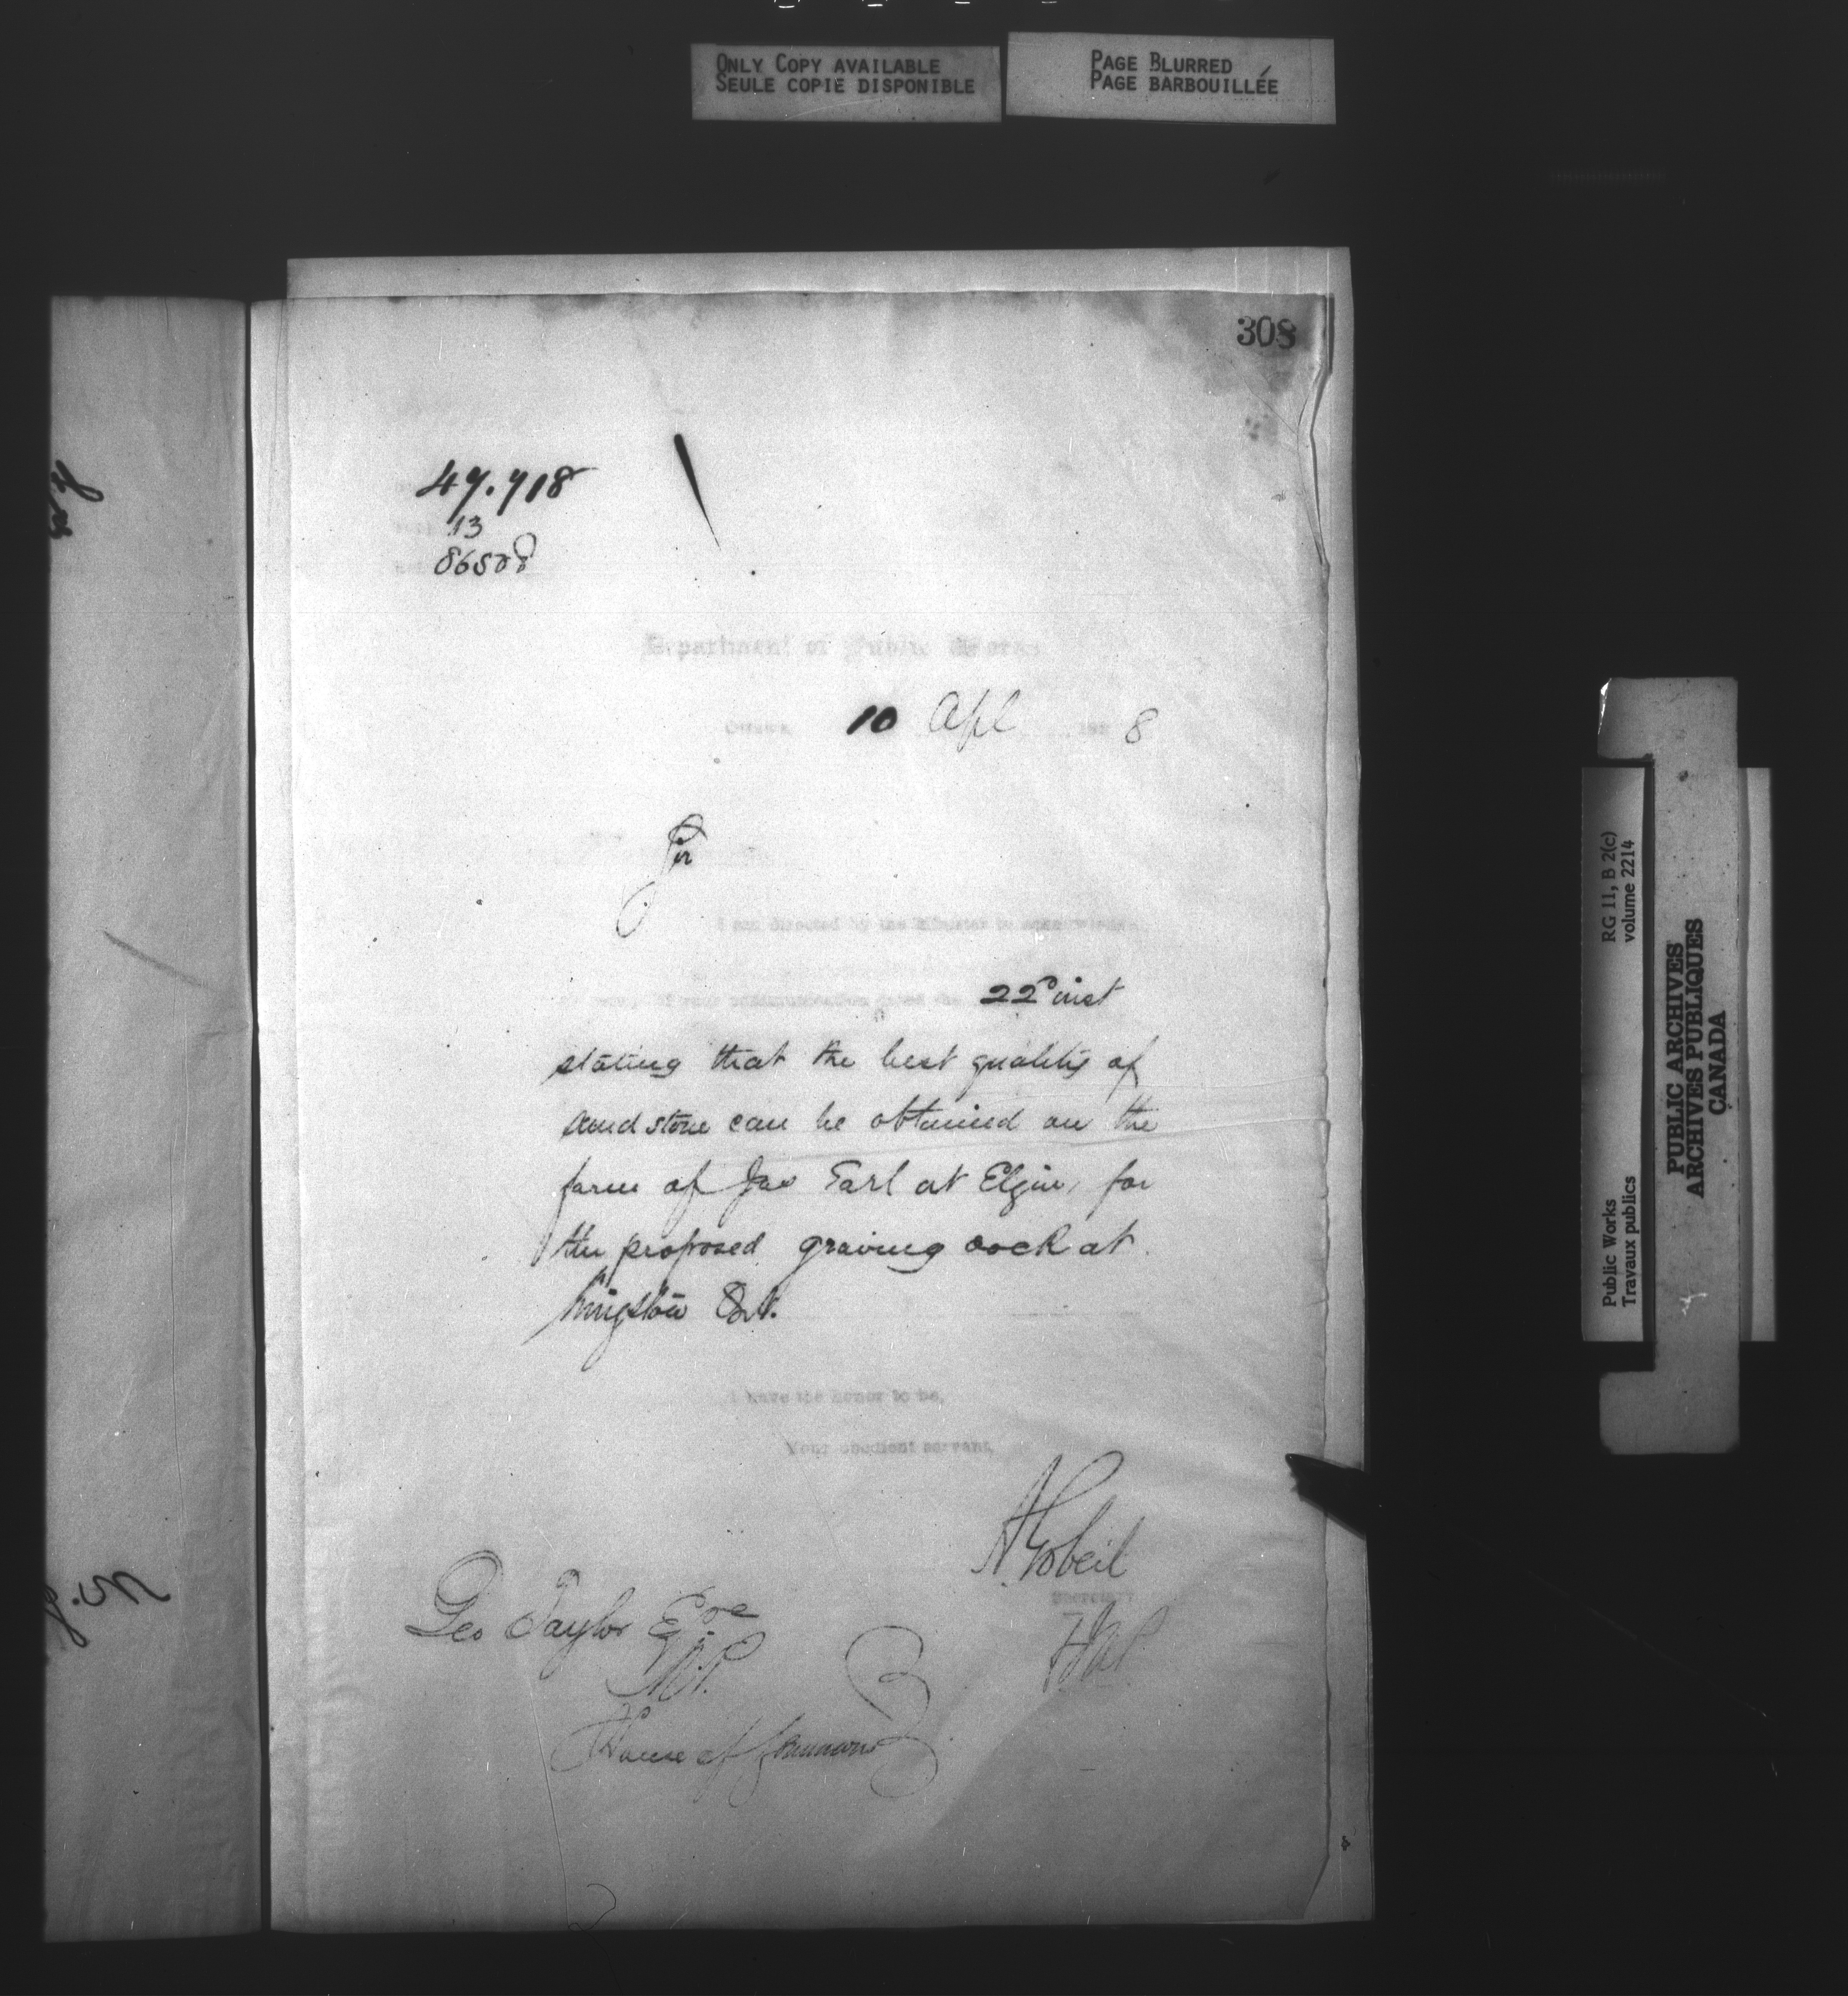 ONLY COPY AVAILABLE
SEULE COPIE DISPONIBLE
PAGE BLURRED
PAGE BARBOUILLÉE
308
47.718
13
Department of Public Works
Ottawa 10 Apl 188 8
Sir
I am directed by the Minister to acknowledge
of your communication dated the 22d inst
stating that the best quality of
sand stone can be obtained on the
farm of Jas Earl at Elgin, for
the proposed graving dock at
Kingston Ont.
I have the honor to be,
Your obedient servant,
A Gobeil
Secretary
Geo Taylor Esqre
M.P.
House of Commons
RG 11, B 2(c)
volume 2214
Public Works
Travaux publics
PUBLIC ARCHIVES
ARCHIVES PUBLIQUES
CANADA